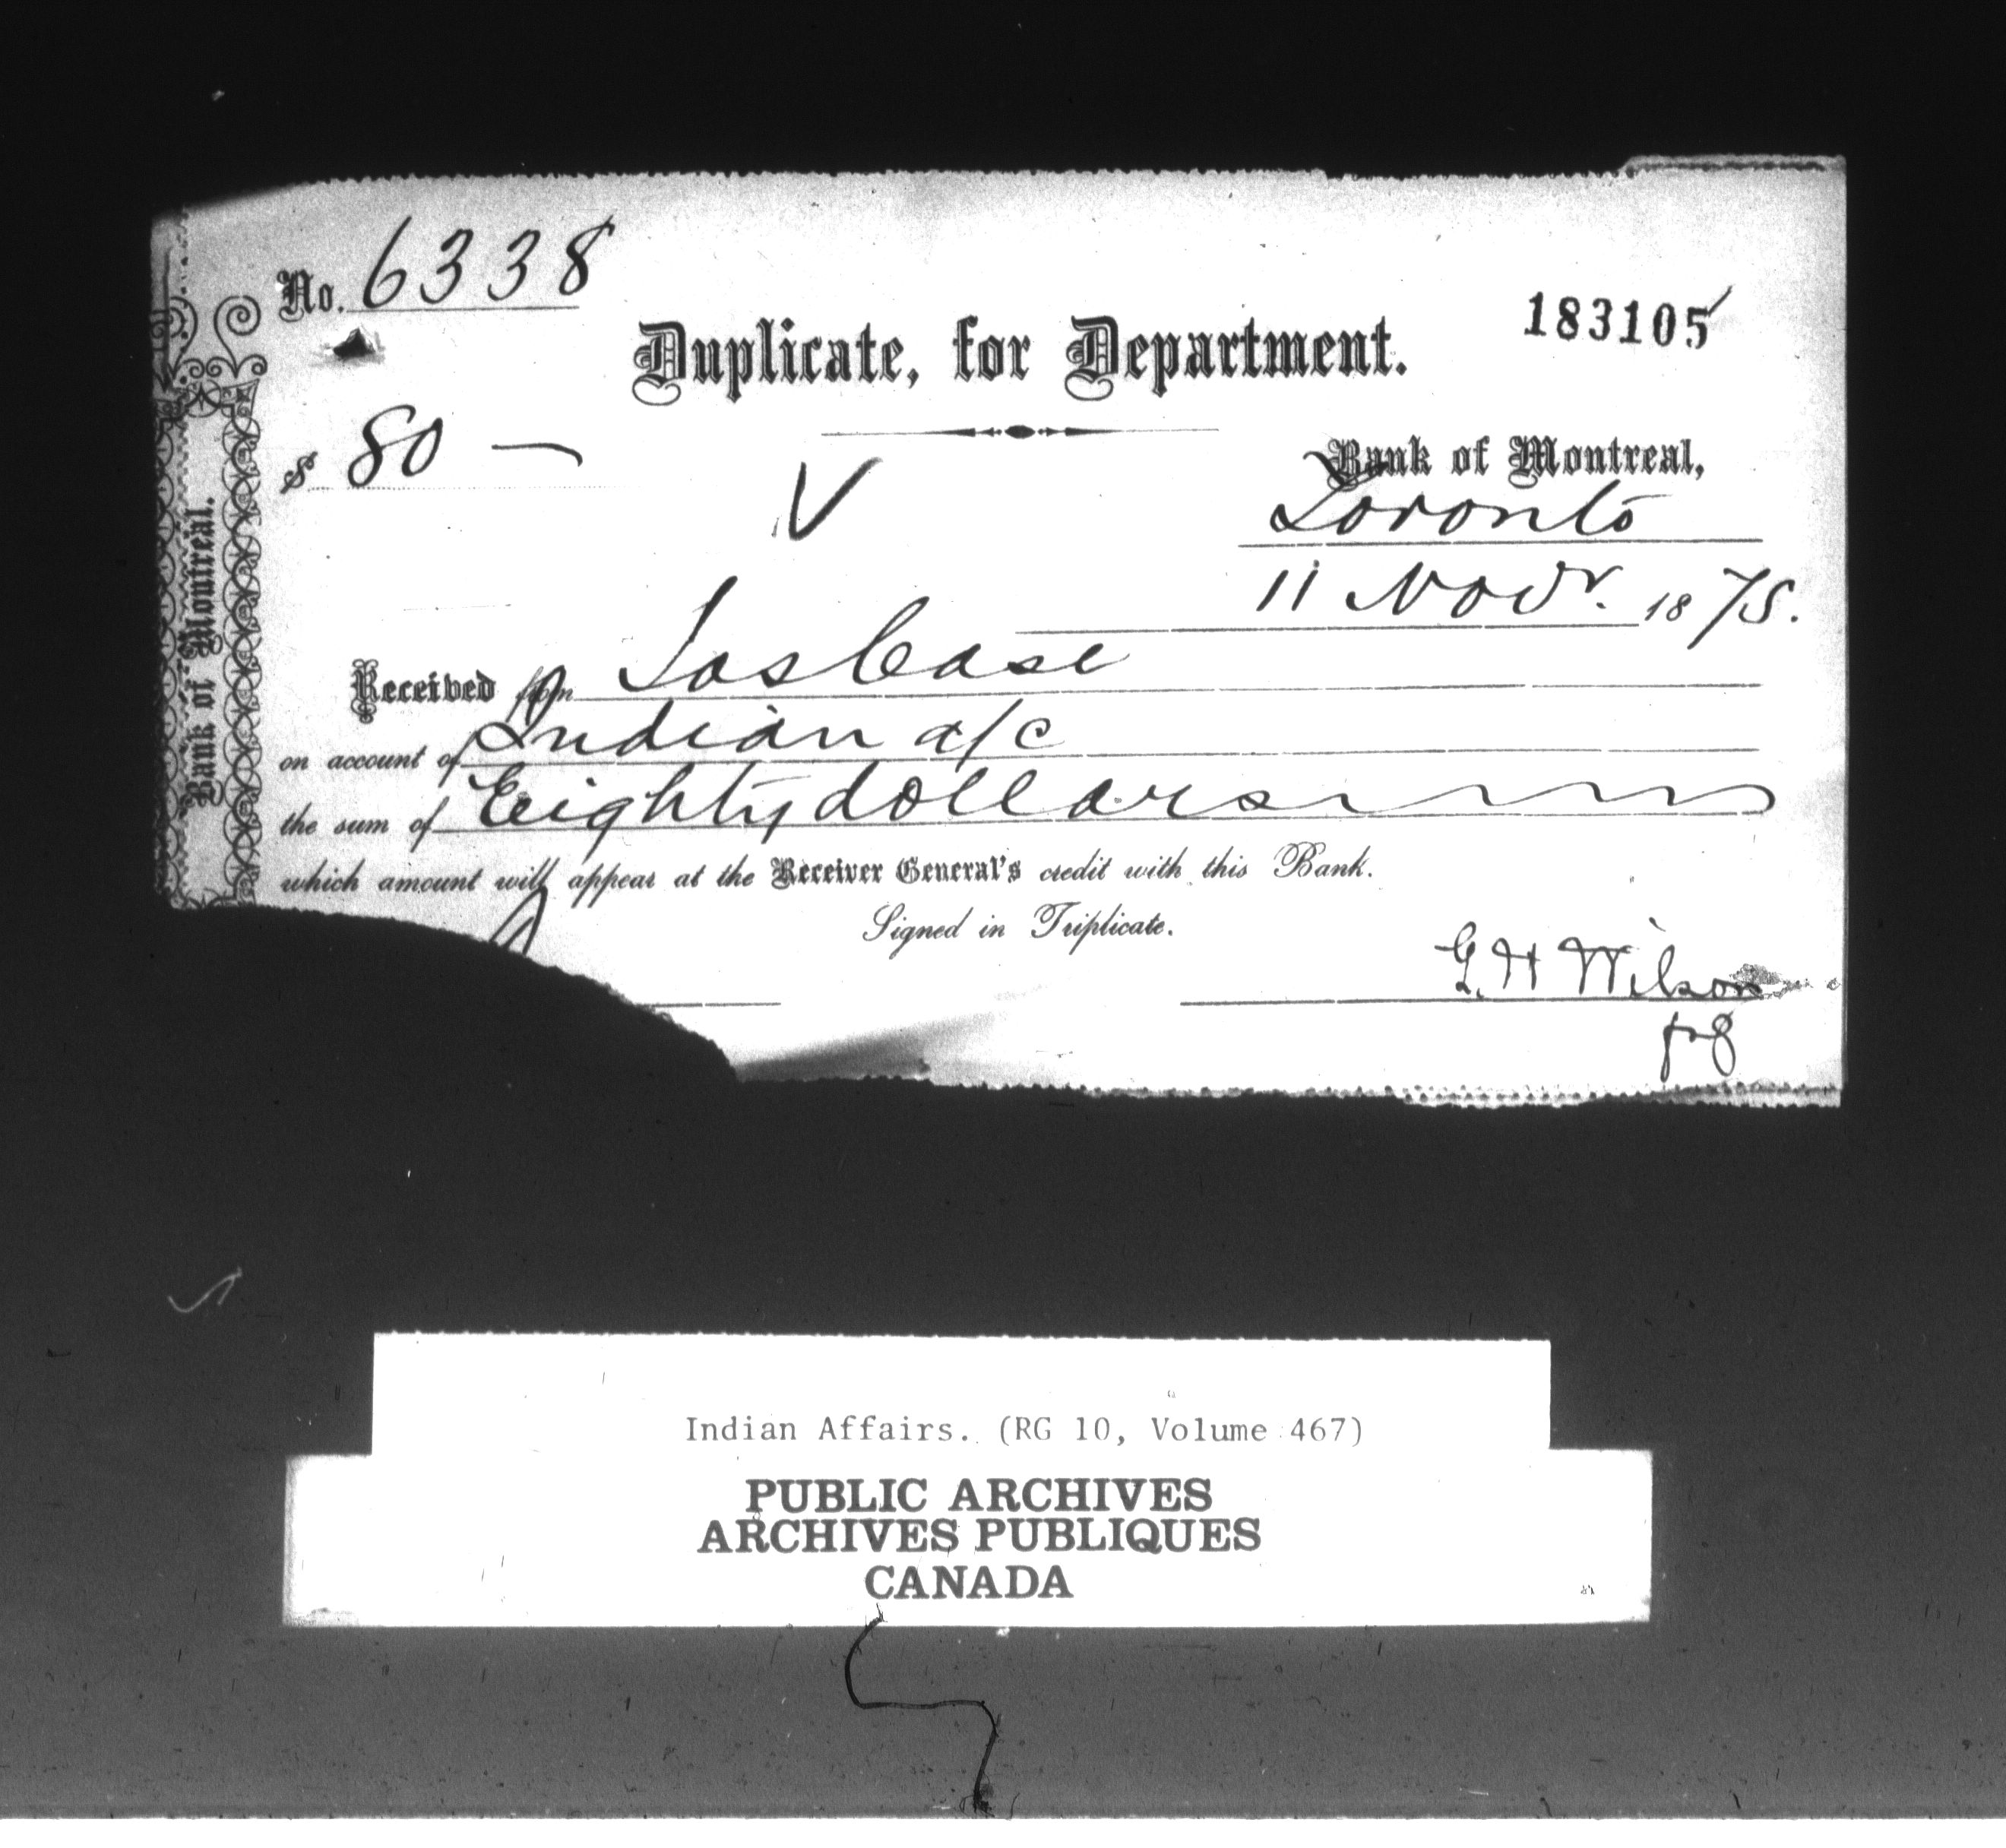 No. 6338
183105
Duplicate, for Department.
$ 80 —
Bank of Montreal,
Toronto
11 Novr. 1875.
Received from Jas Case
on account of Indian a/c
the sum of Eighty dollars
which amount will appear at the Receiver General's credit with this Bank.
Signed in Triplicate.
G. H Wilson
Bank of Montreal.
Indian Affairs. (RG 10, Volume 467)
PUBLIC ARCHIVES
ARCHIVES PUBLIQUES
CANADA